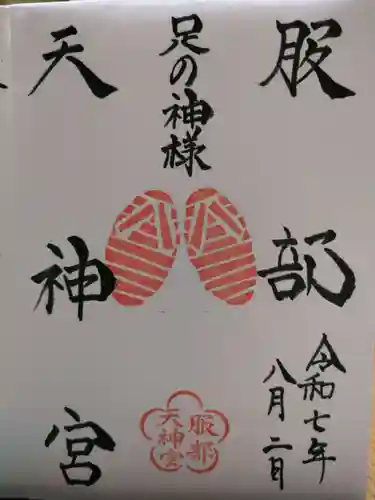 服部
足の神様
天神宮
令和七年
八月二日
服部
天神宮